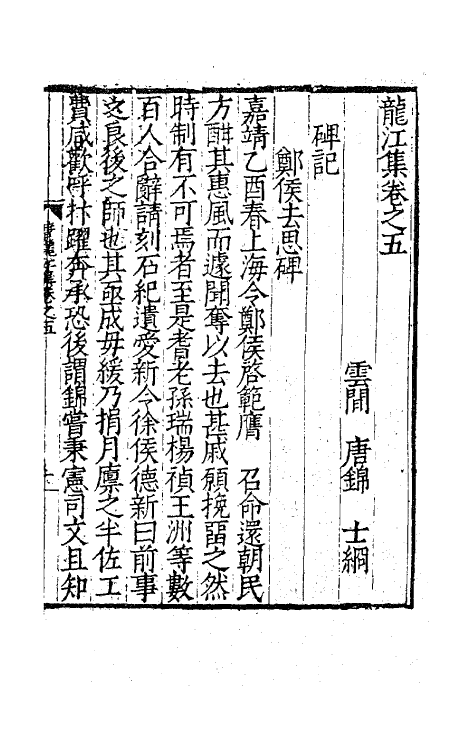 龍江集卷之五
雲間 唐錦 士綱
碑記
鄭侯去思碑
嘉靖乙酉春上海令鄭侯啓範膺 召命還朝民
方酣其惠風而遽聞奪以去也甚戚願挽留之然
時制有不可焉者至是耆老孫瑞楊禎王洲等數
百人合辭請刻石紀遺愛新令徐侯德新曰前事
之良後之師也其亟成毋緩乃捐月廪之半佐工
費咸歡呼抃躍奔承恐後謂錦嘗秉憲司文且知